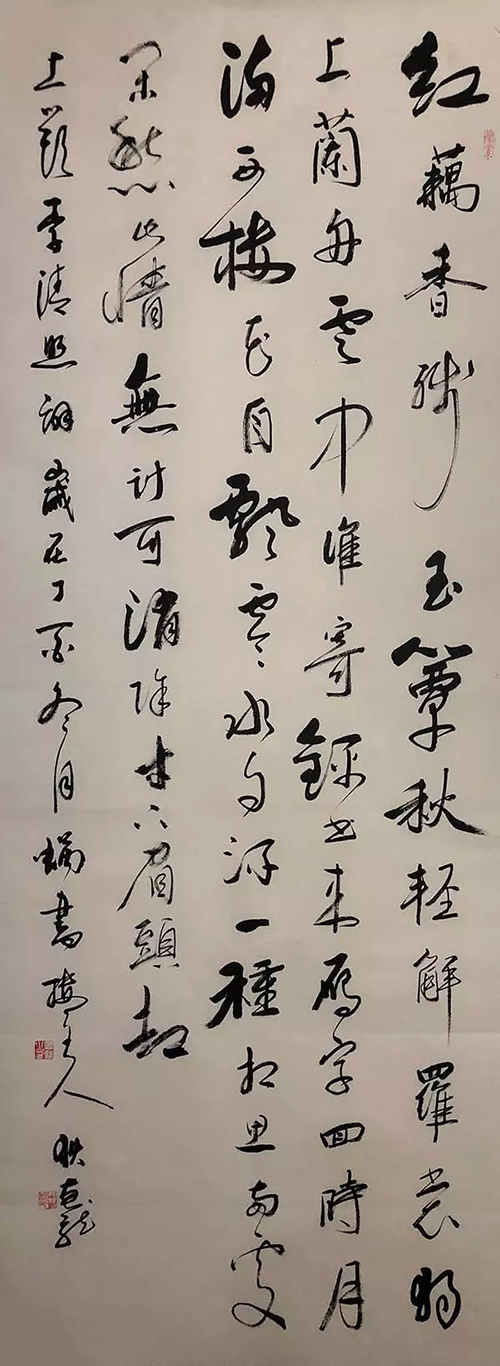 紅藕香殘玉簟秋輕解羅裳獨
上蘭舟雲中誰寄錦書來雁字回時月
滿西樓花自飄零水自流一種相思兩處
閑愁此情無計可消除才下眉頭却
上心頭李清照詞歲在丁酉冬月蝸書樓主人